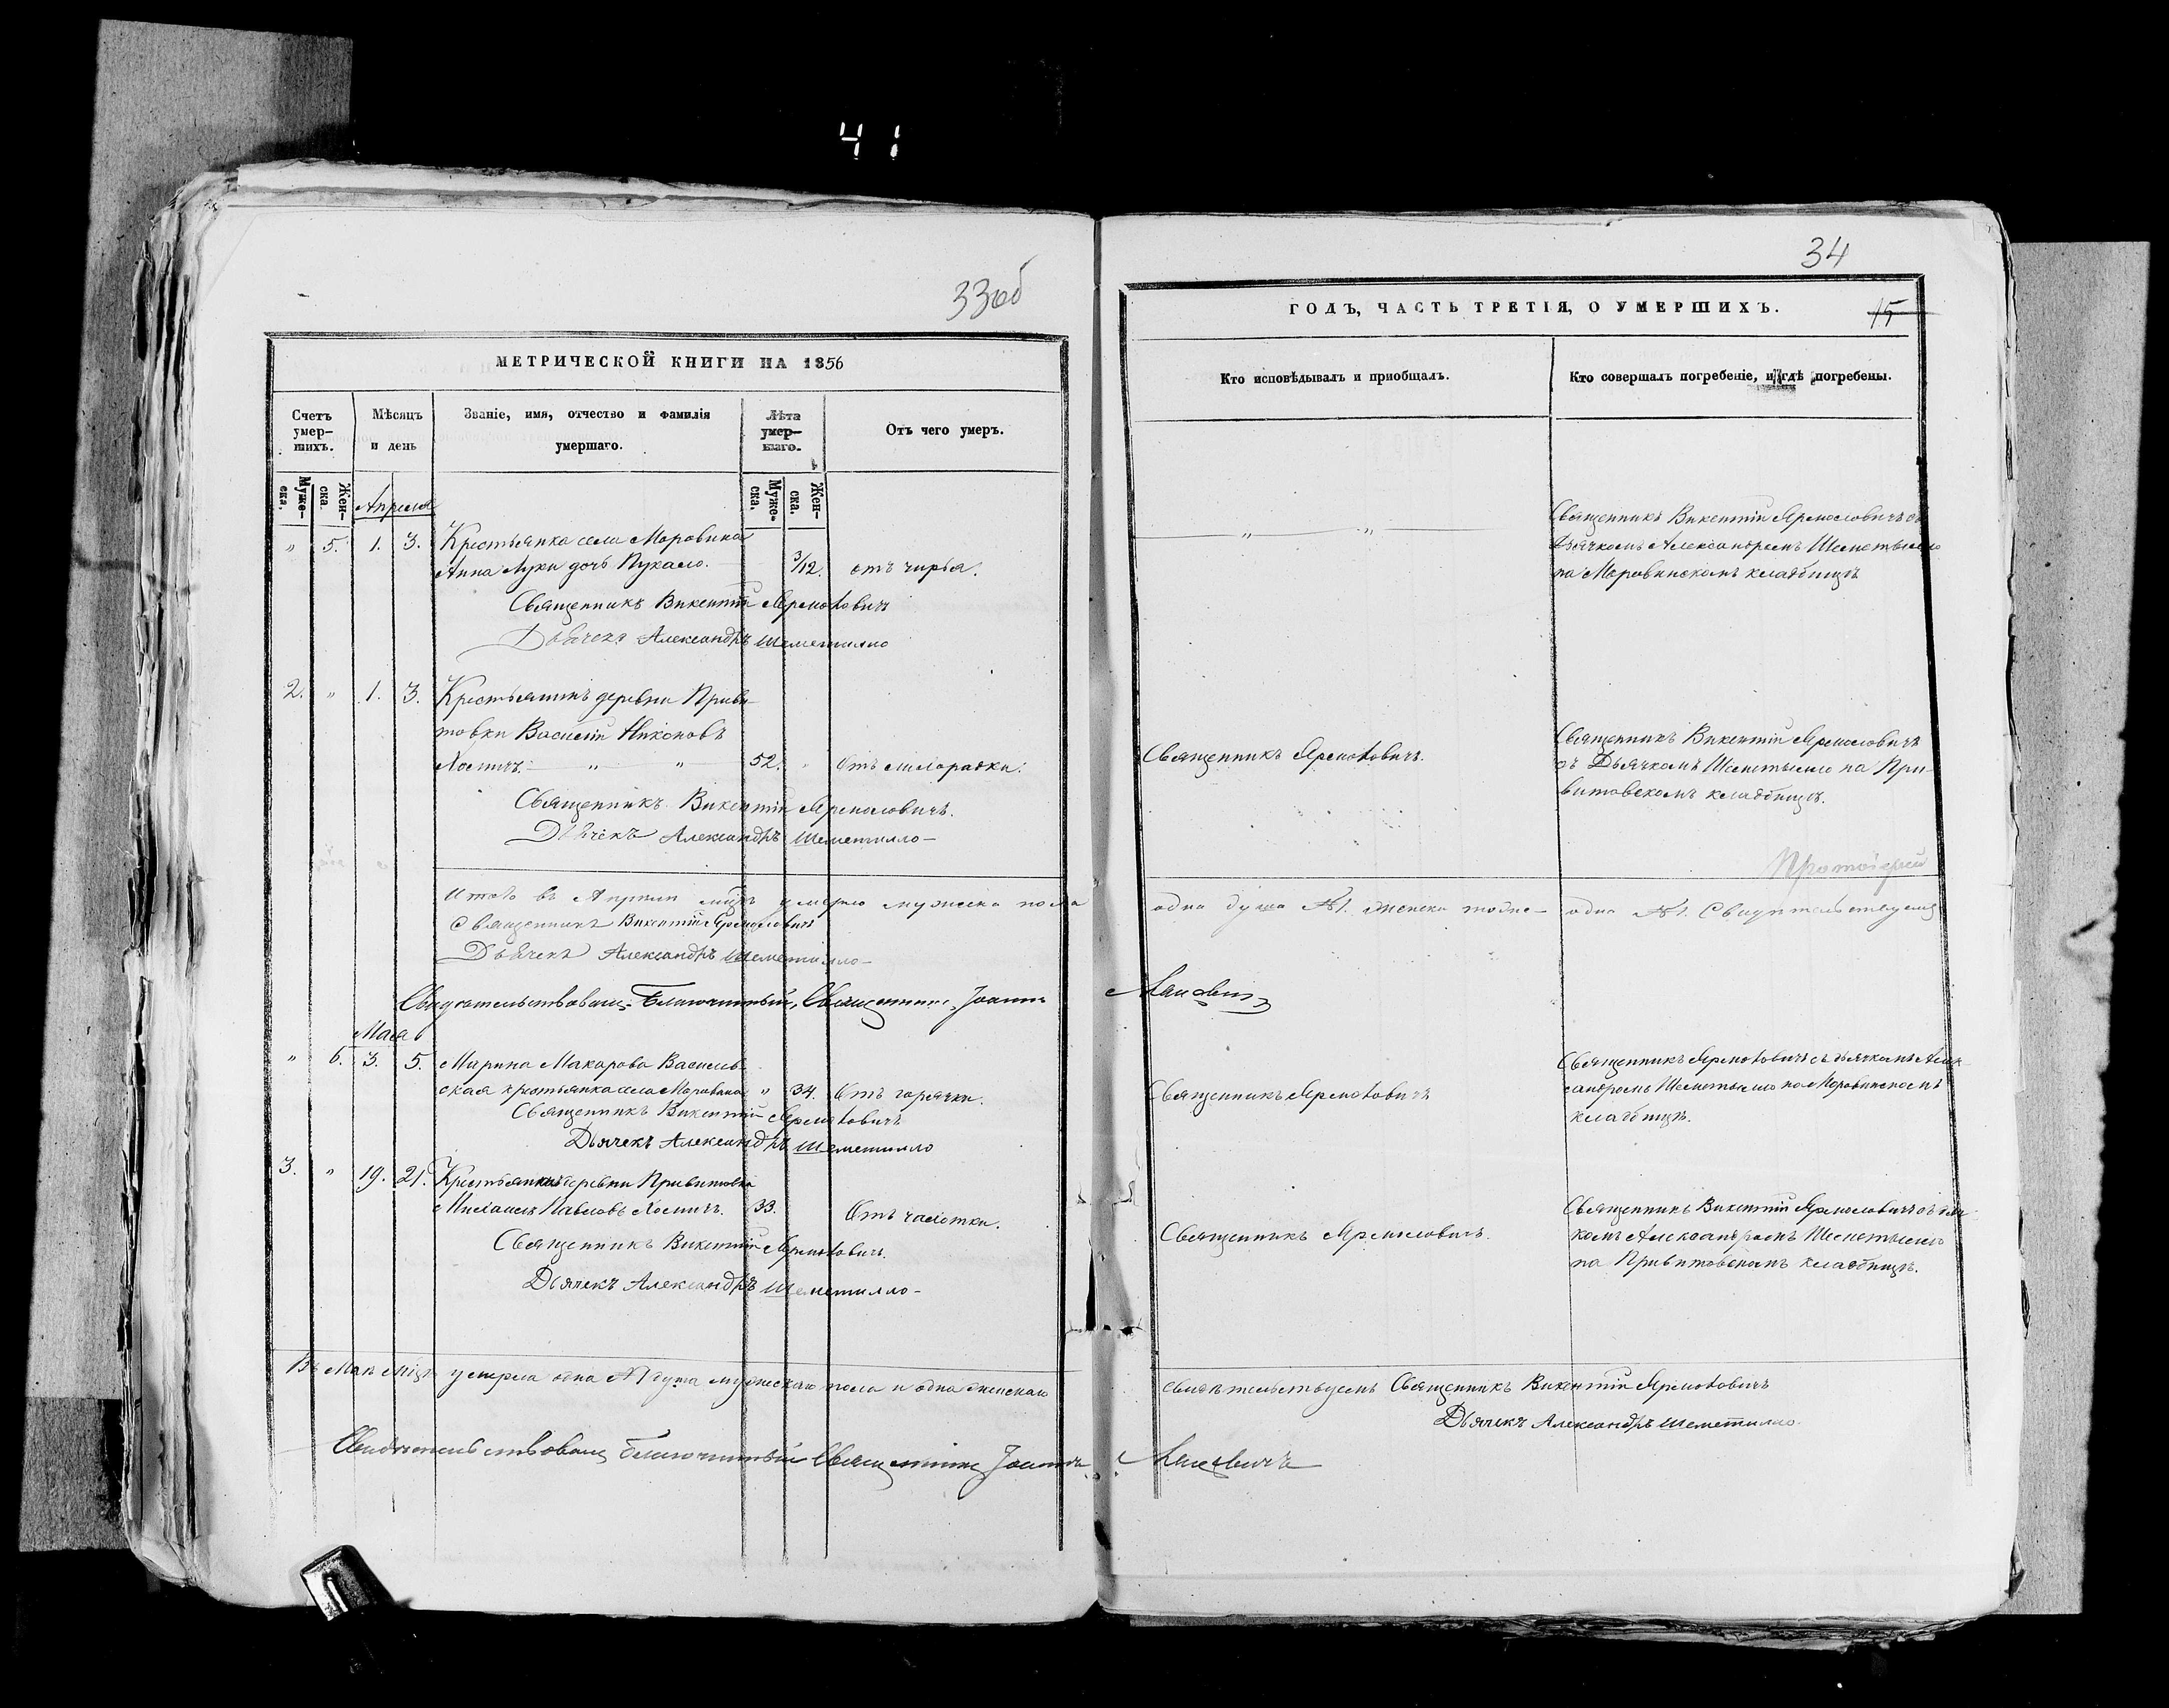 41
33об
МЕТРИЧЕСКОЙ КНИГИ НА 1856
Счетъ умер-шихъ.
Мѣсяцъ и день
Званіе, имя, отчество и фамилія умершаго.
Лѣта умер-шаго.
Отъ чего умеръ.
Муже-ска.
Жен-ска.
Муже-ска.
Жен-ска.
Апреля
" 5. 1. 3. Крестьянка села Моровина
Анна Луки дочь Пукало. 3/12. отъ чирья.
Священникъ Викентій Ярмоловичъ
Дьячекъ Александръ Шеметилло
2. " 1. 3. Крестьянинъ деревни Приви-
товки Василій Никоновъ
Хомичъ. " " 52. " Отъ лихорадки.
Священникъ Викентій Ярмоловичъ.
Дьячекъ Александръ Шеметилло
Итого въ Апрѣлѣ мцѣ умерло мужеска пола
Священникъ Викентій Ярмоловичъ
Дьячекъ Александръ Шеметилло
Свидѣтельствовалъ Благочинный, Священникъ Іоаннъ
Мая
" 6. 3. 5. Марина Макарова Василев-
ская крестьянка села Моровина " 34. Отъ горячки.
Священникъ Викентій Ярмоловичъ
Дьячекъ Александръ Шеметилло
3. " 19. 21. Крестьянинъ деревни Привитовки
Михаилъ Павловъ Хомичъ. 33. Отъ чахотки.
Священникъ Викентій Ярмоловичъ.
Дьячекъ Александръ Шеметилло
Въ Маѣ мцѣ умерла одна №1 душа мужескаго пола и одна женскаго
Свидѣтельствовалъ Благочинный Священникъ Іоаннъ
34
ГОДЪ, ЧАСТЬ ТРЕТІЯ, О УМЕРШИХЪ.
15
Кто исповѣдывалъ и приобщалъ.
Кто совершалъ погребеніе, и гдѣ погребены.
" "
Священникъ Викентій Ярмоловичъ съ
дьячкомъ Александромъ Шеметыломъ
на Моровинскомъ кладбищѣ
Священникъ Ярмоловичъ.
Священникъ Викентій Ярмоловичъ
съ Дьячкомъ Шеметылло на При-
витовскомъ кладбищѣ.
Протоіерей
одна душа №1. женска тоже одна №1. Свидѣтельствуемъ
Священникъ Ярмоловичъ
Священникъ Ярмоловичъ съ дьячкомъ Алек-
сандромъ Шеметылло на Моровинскомъ
кладбищѣ.
Священникъ Ярмоловичъ.
Священникъ Викентій Ярмоловичъ съ дья-
комъ Александромъ Шеметылло
на Привитовскомъ кладбищѣ.
свидѣтельствуемъ Священникъ Викентій Ярмоловичъ
Дьячекъ Александръ Шеметилло.